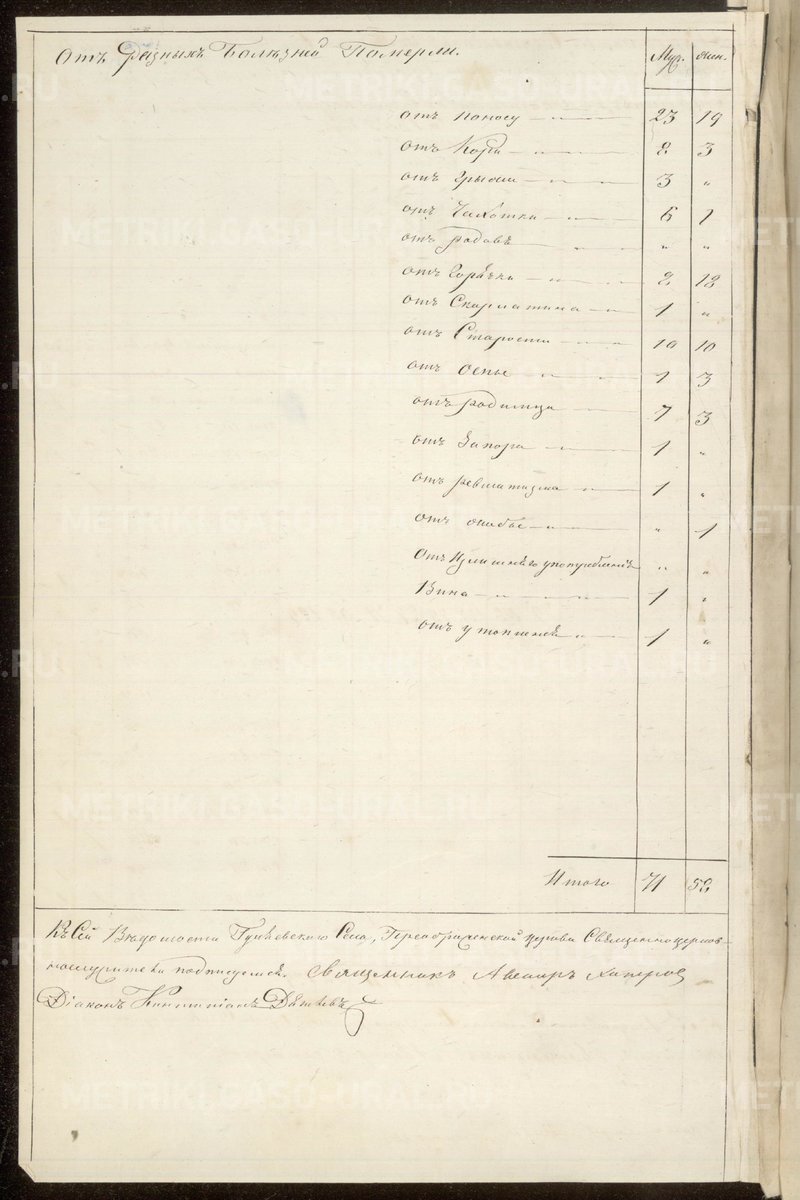 Отъ разныхъ Болѣзней Померли. Муж. жен.
отъ поносу — „ — 23 19
отъ Кори — „ — 2 3
отъ грыжи — „ — 3 „
отъ Чахотки — „ — 6 1
отъ родовъ — „ — „ „
отъ Горячки — „ — 2 12
отъ Скарлатина — „ — 1 „
отъ Старости — „ — 10 10
отъ оспы — „ — 1 3
отъ родимца — 7 3
отъ Запора — „ — 1 „
отъ ревматизма — „ — 1 „
отъ — „ — „ 1
Отъ Излишнѣго употребленiя „ „
Вина — „ — 1 „
отъ утопленiя — „ — 1 „
Итого 71 52
Къ Сей Вѣдомости Села, Преображенской церкви Свѣщенноцерков-
нослужители подписуемся. Священникъ
Дiаконъ
METRIKI.GASO-URAL.RU